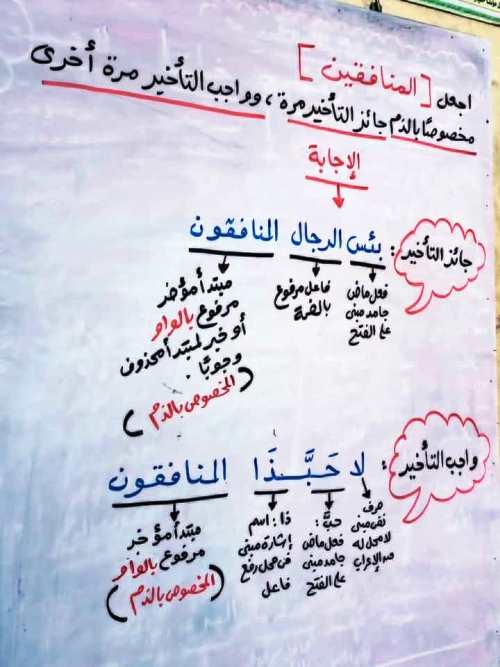 اجعل [المنافقين]
مخصوصًا بالذم جائز التأخير مرة، وواجب التأخير مرة أخرى
الإجابة
جائز التأخير: بئس الرجال المنافقون
فعل ماض
جامد مبنى
على الفتح
فاعل مرفوع
بالضمة
مبتدأ مؤخر
مرفوع بالواو
أو خبر لمبتدأ محذوف
وجوبًا
(المخصوص بالذم)
واجب التأخير: لا حَبَّذَا المنافقون
حرف
نفى مبنى
لا محل له
من الإعراب
حبَّ:
فعل ماض
جامد مبنى
على الفتح
ذا: اسم
إشارة مبنى
فى محل رفع
فاعل
مبتدأ مؤخر
مرفوع بالواو
(المخصوص بالذم)